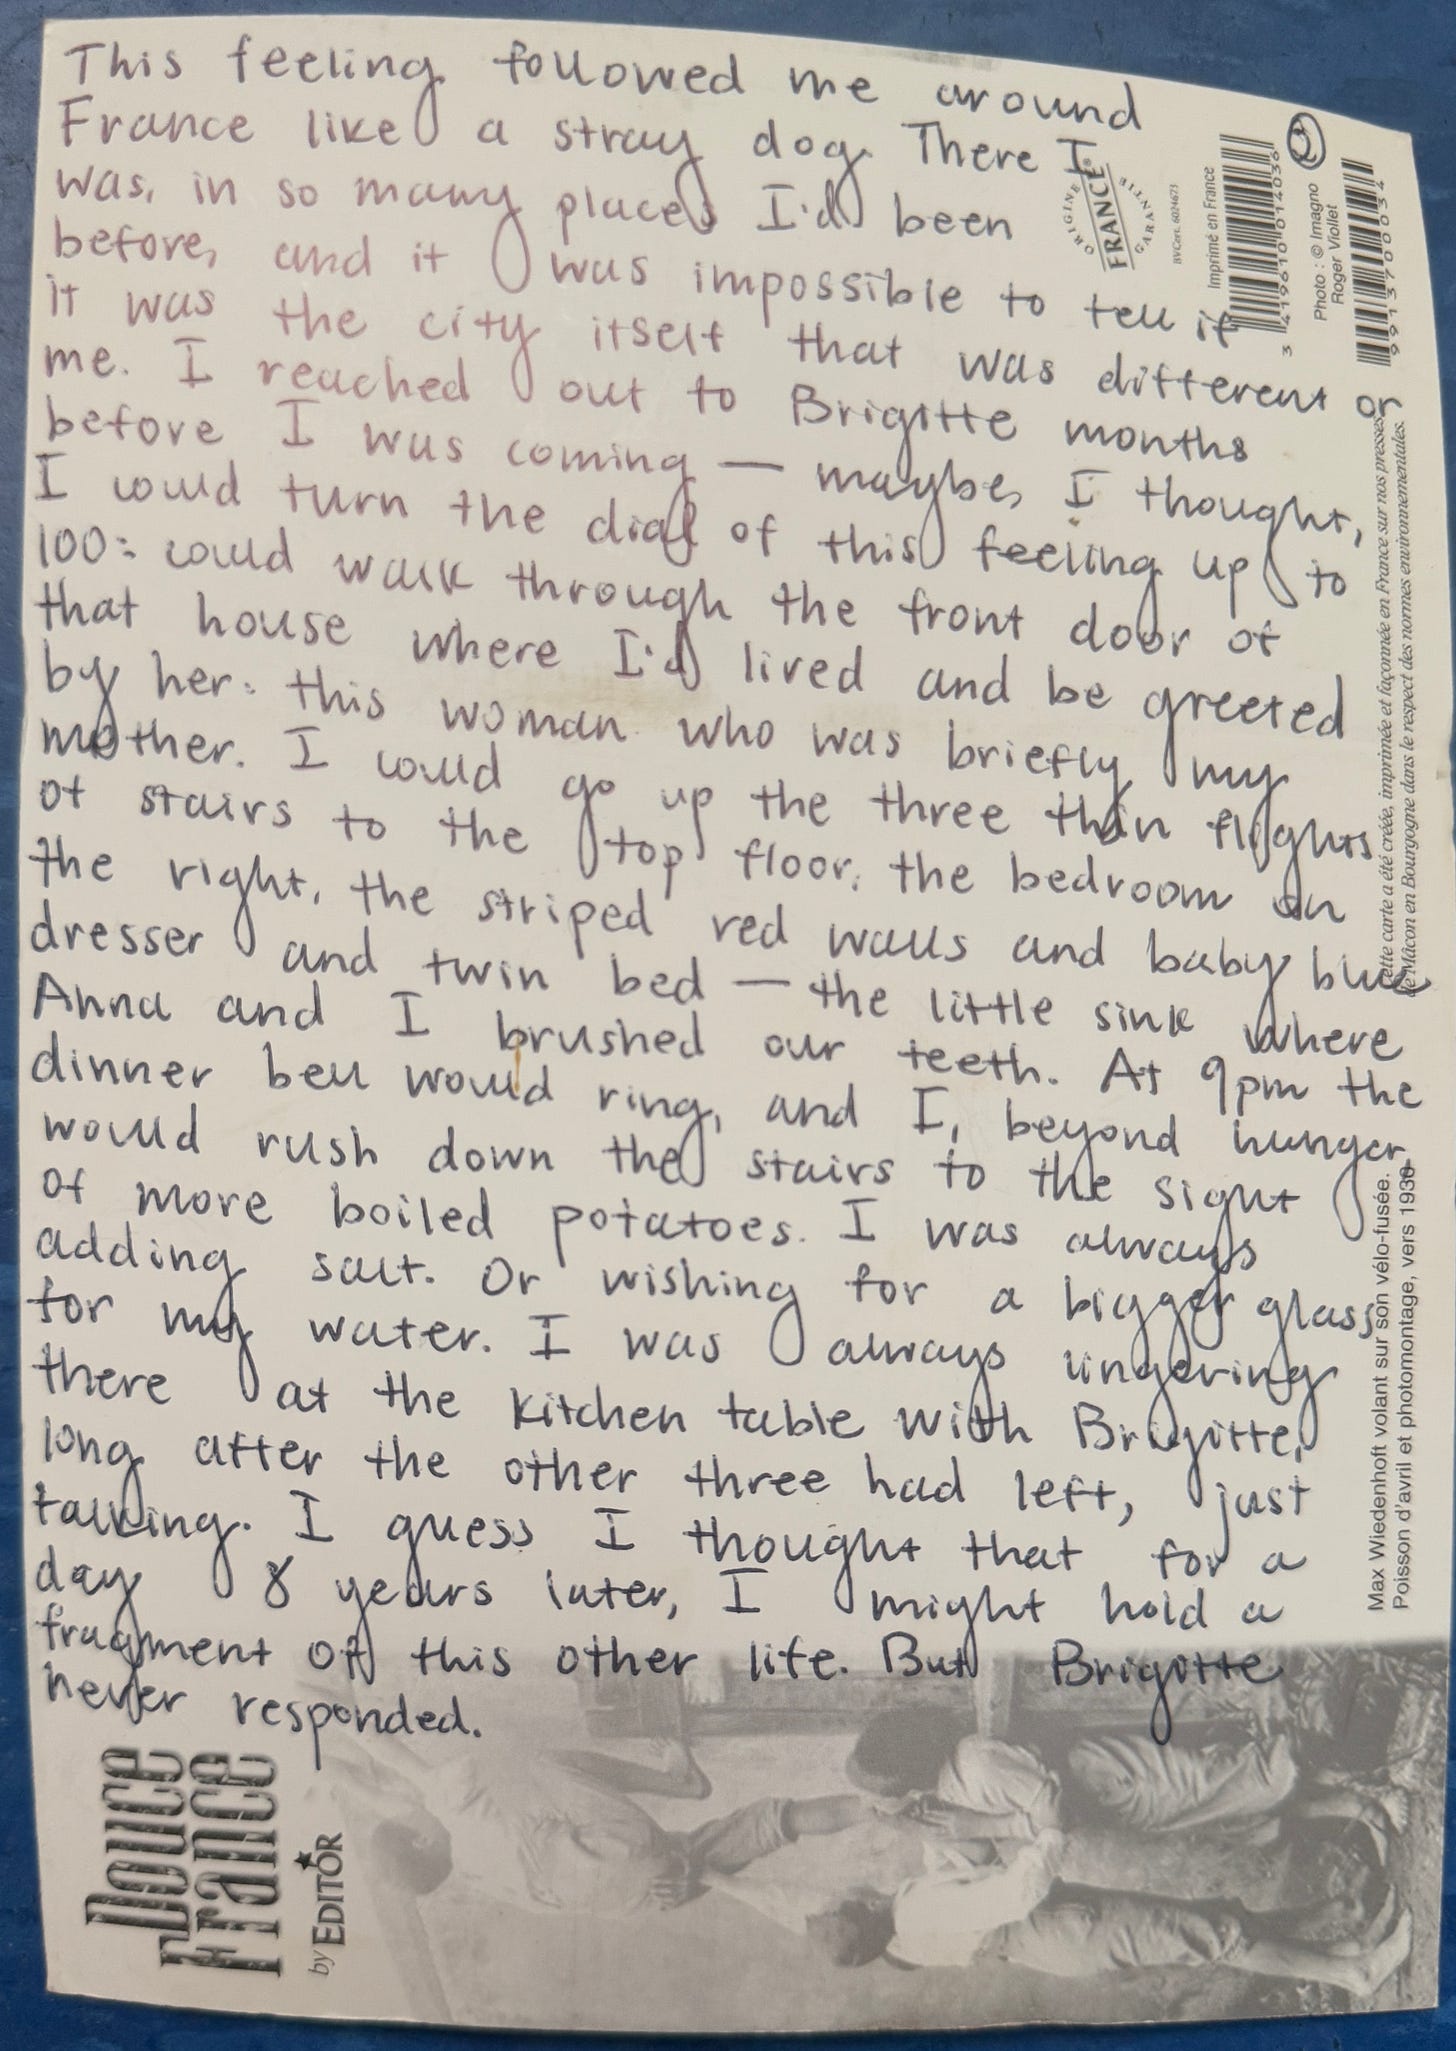 This feeling followed me around
France like a stray dog. There I
was, in so many places I'd been
before, and it was impossible to tell if
it was the city itself that was different or
me. I reached out to Brigitte months
before I was coming — maybe, I thought,
I could turn the dial of this feeling up to
100: could walk through the front door of
that house where I'd lived and be greeted
by her: this woman who was briefly my
mother. I could go up the three thin flights
of stairs to the top floor, the bedroom on
the right, the striped red walls and baby blue
dresser and twin bed — the little sink where
Anna and I brushed our teeth. At 9pm the
dinner bell would ring, and I, beyond hunger,
would rush down the stairs to the sight
of more boiled potatoes. I was always
adding salt. Or wishing for a bigger glass
for my water. I was always lingering
there at the kitchen table with Brigitte,
long after the other three had left, just
talking. I guess I thought that for a
day 8 years later, I might hold a
fragment of this other life. But Brigitte
never responded.
2
ORIGINE
FRANCE
GARANTIE
BVCert. 6024673
Imprimé en France
3 419610 014036
Photo : © Imagno
Roger Viollet
9913700034
Cette carte a été créée, imprimée et façonnée en France sur nos presses
de Mâcon en Bourgogne dans le respect des normes environnementales.
Max Wiedenhoft volant sur son vélo-fusée.
Poisson d'avril et photomontage, vers 1930
Douce
France
by EDITOR